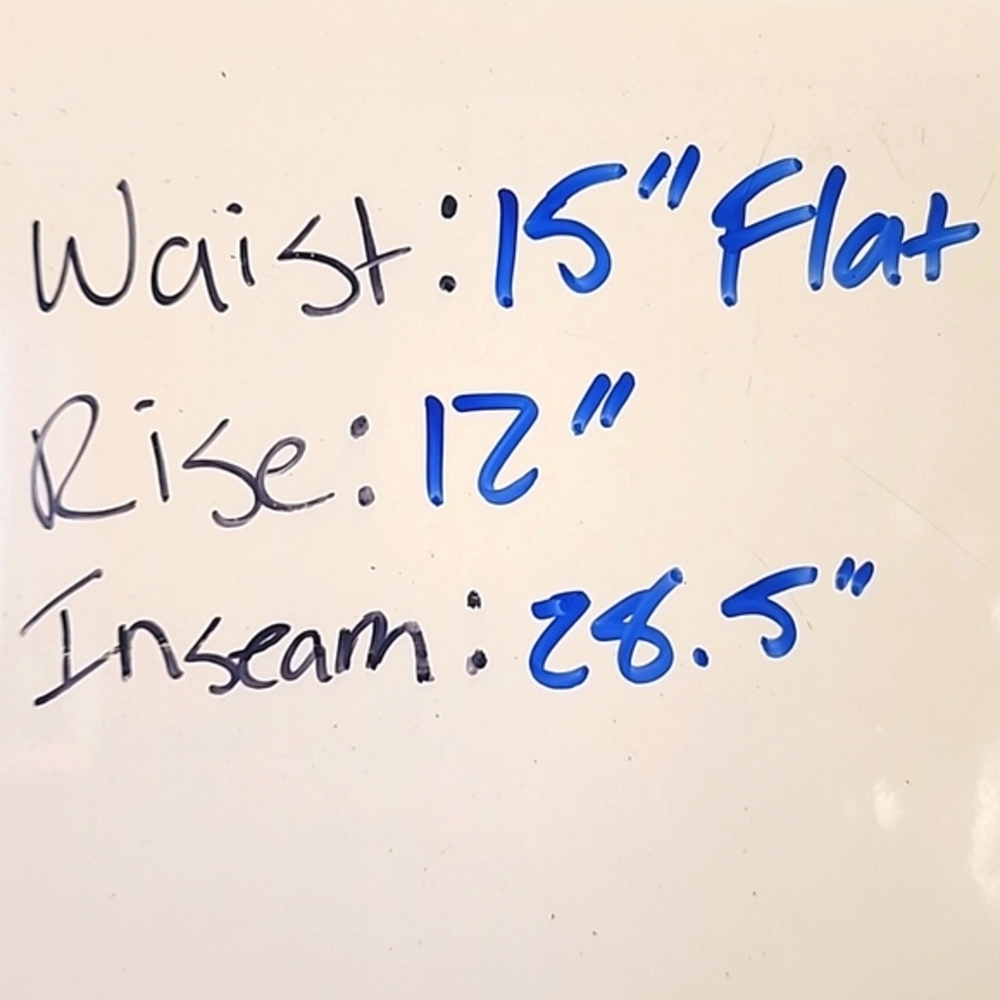 Waist: 15" Flat
Rise: 12"
Inseam: 28.5"